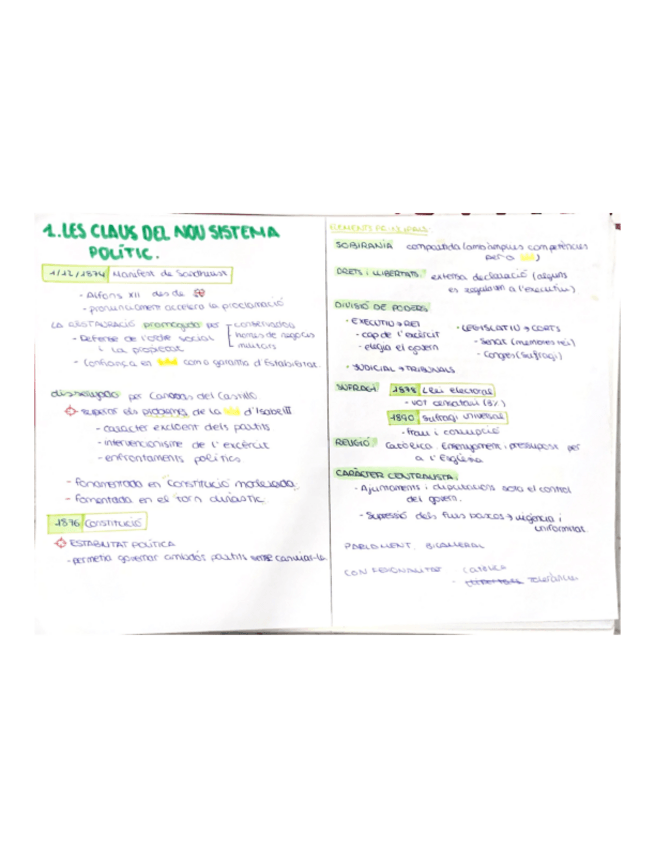 1. LES CLAUS DEL NOU SISTEMA
POLÍTIC.
1/12/1874 Manifest de Sandhurst
- Alfons XII des de
- pronunciament accelera la proclamació
LA RESTAURACIÓ promoguda per
conservadors
homes de negocis
militars
- Defensa de l'ordre social
i la propietat
- Confiança en com a garantia d'Estabilitat.
dissenyado per Cánovas del Castillo
superar els problemes de la d'Isabel II
- caràcter excloent dels partits
- intervencionisme de l'exèrcit
- enfrontaments polítics
- Fonamentada en Constitució moderada.
- Fomentada en el torn dinàstic.
1876 Constitució
ESTABILITAT POLÍTICA
- permetia governar ambdós partits sense canviar-la.
ELEMENTS PRINCIPALS
SOBIRANIA compartida (amb àmplies competències
per a )
DRETS I LLIBERTATS: extensa declaració (alguns
es regulaven a l'executiu)
DIVISIÓ DE PODERS
- EXECUTIU → REI
- cap de l'exèrcit
- elegia el govern
- LEGISLATIU → CORTS
- Senat
- Congrés (sufragi)
- JUDICIAL → TRIBUNALS
SUFRAGI 1878 Llei electoral
- vot censatari (5%)
1890 Sufragi universal
- frau i corrupció
RELIGIÓ: Catòlica. Ensenyament i pressupost per
a l'Església
CARÀCTER CENTRALISTA.
- Ajuntaments i diputacions sota el control
del govern.
- Supressió dels furs bascos → vigència i
uniformitat
PARLAMENT BICAMERAL
CONFESIONALITAT CATÒLICA